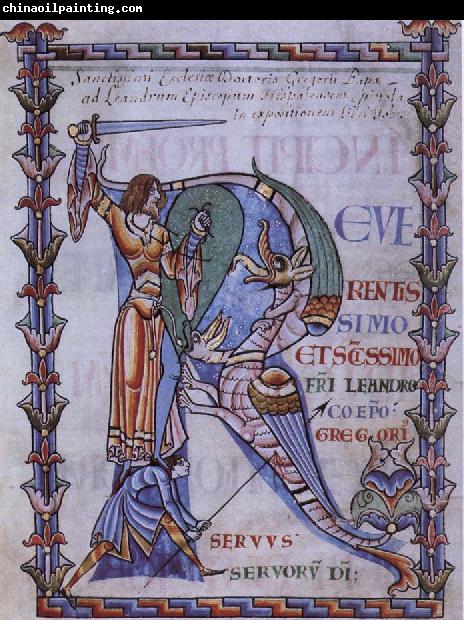 chinaoilpainting.com
Sanctissimi Ecclesiæ Doctoris Gregorii Papæ
ad Leandrum Episcopum Hispalensem Epistola
in expositionem libri Iob.
R
EVE
RENTIS
SIMO
ET SC̄ISSIMO
FR̄I LEANDRO
COEP̄O:
GREGORI
SERVVS
SERVORV̄ D̄I;
www.chinaoilpainting.com